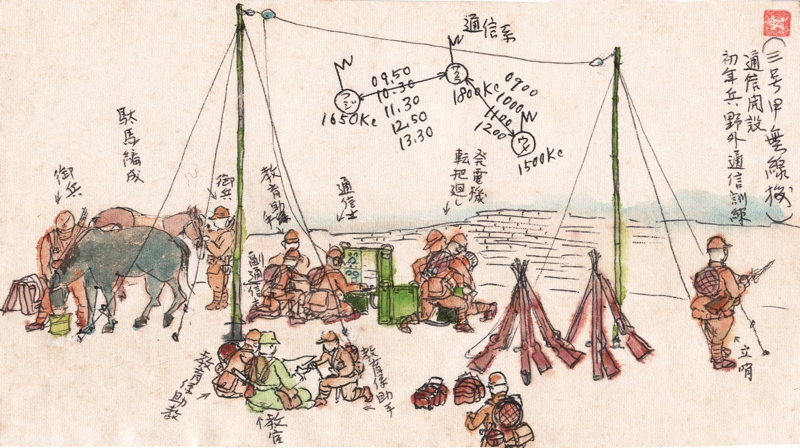 (三号甲無線機)
通信開設
初年兵野外通信訓練
通信系
フジ
1650Kc
09.50
10.30
11.30
12.50
13.30
1800Kc
0900
1000
1100
1200
1500Kc
駄馬編成
御兵
御兵
教育助手
通信士
発電機
転把廻し
副通信士
教育係助教
教官
教育係助手
立哨